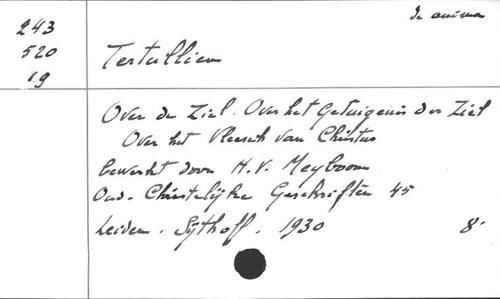 de anima
243
520
19
Tertullien
Over de Ziel. Over het Getuigenis der Ziel
Over het Vleesch van Christus
bewerkt door H.V. Meyboom
Oud-Christelijke Geschriften 45
Leiden. Sijthoff. 1930 8°